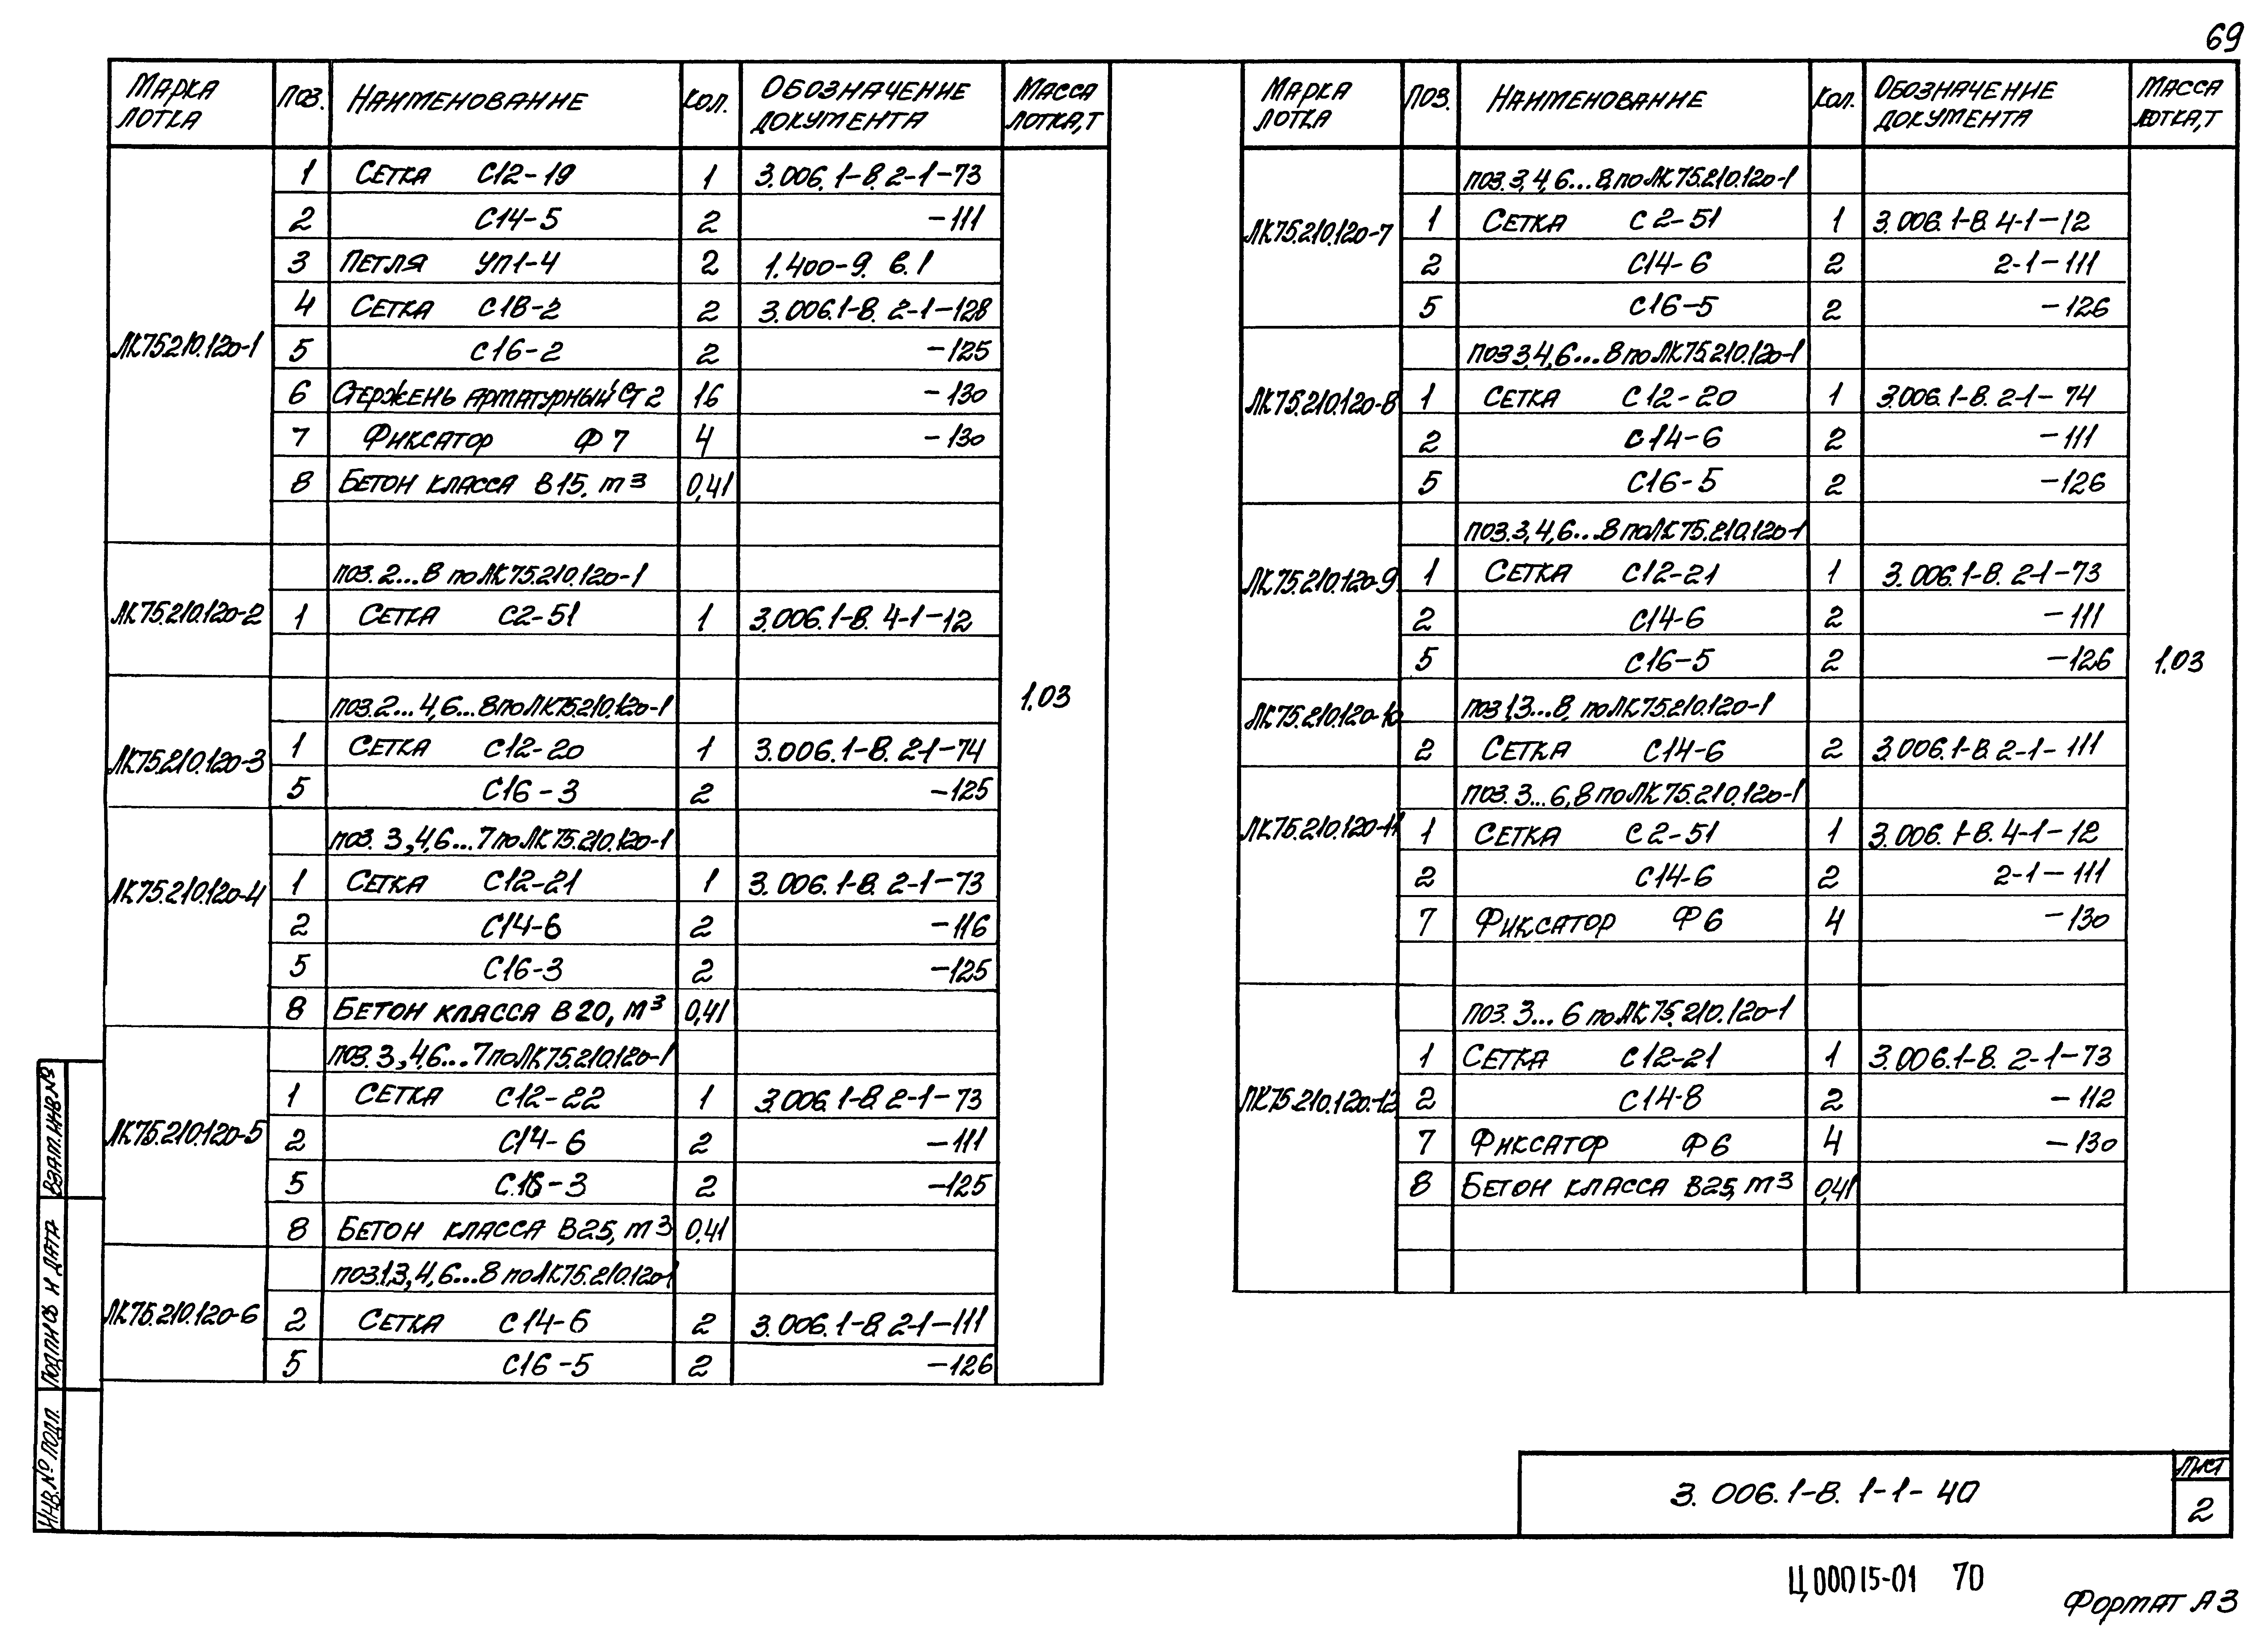 69
Марка лотка Поз. Наименование Кол. Обозначение документа Масса лотка, т
ЛК75.210.120-1
1 Сетка С12-19 1 3.006.1-8.2-1-73
2 С14-5 2 -111
3 Петля УП1-4 2 1.400-9. В.1
4 Сетка С18-2 2 3.006.1-8. 2-1-128
5 С16-2 2 -125
6 Стержень арматурный Ст2 16 -130
7 Фиксатор Ф7 4 -130
8 Бетон класса В15, м³ 0,41
ЛК75.210.120-2
поз. 2...8 по ЛК75.210.120-1
1 Сетка С2-51 1 3.006.1-8. 4-1-12
ЛК75.210.120-3
поз.2...4,6...8 по ЛК75.210.120-1
1 Сетка С12-20 1 3.006.1-8. 2-1-74
5 С16-3 2 -125
ЛК75.210.120-4
поз. 3,4,6...7 по ЛК75.210.120-1
1 Сетка С12-21 1 3.006.1-8. 2-1-73
2 С14-6 2 -116
5 С16-3 2 -125
8 Бетон класса В20, м³ 0,41
ЛК75.210.120-5
поз. 3,4,6...7 по ЛК75.210.120-1
1 Сетка С12-22 1 3.006.1-8.2-1-73
2 С14-6 2 -111
5 С16-3 2 -125
8 Бетон класса В25, м³ 0,41
ЛК75.210.120-6
поз.1,3,4,6...8 по ЛК75.210.120-1
2 Сетка С14-6 2 3.006.1-8.2-1-111
5 С16-5 2 -126
1.03
Марка лотка Поз. Наименование Кол. Обозначение документа Масса лотка, т
ЛК75.210.120-7
поз.3,4,6...8, по ЛК75.210.120-1
1 Сетка С2-51 1 3.006.1-8.4-1-12
2 С14-6 2 2-1-111
5 С16-5 2 -126
ЛК75.210.120-8
поз 3,4,6...8 по ЛК75.210.120-1
1 Сетка С12-20 1 3.006.1-8.2-1-74
2 С14-6 2 -111
5 С16-5 2 -126
ЛК75.210.120-9
поз.3,4,6...8 по ЛК75.210.120-1
1 Сетка С12-21 1 3.006.1-8. 2-1-73
2 С14-6 2 -111
5 С16-5 2 -126
ЛК75.210.120-10
поз 1,3...8, по ЛК75.210.120-1
2 Сетка С14-6 2 3.006.1-8.2-1-111
ЛК75.210.120-11
поз. 3...6,8 по ЛК75.210.120-1
1 Сетка С2-51 1 3.006.1-8.4-1-12
2 С14-6 2 2-1-111
7 Фиксатор Ф6 4 -130
ЛК75.210.120-12
поз. 3...6 по ЛК75.210.120-1
1 Сетка С12-21 1 3.006.1-8. 2-1-73
2 С14-8 2 -112
7 Фиксатор Ф6 4 -130
8 Бетон класса В25, м³ 0,41
1.03
Взам.инв.№
Подпись и дата
Инв.№ подл.
3.006.1-8.1-1-40
Лист
2
Ц00015-01 70
Формат А3